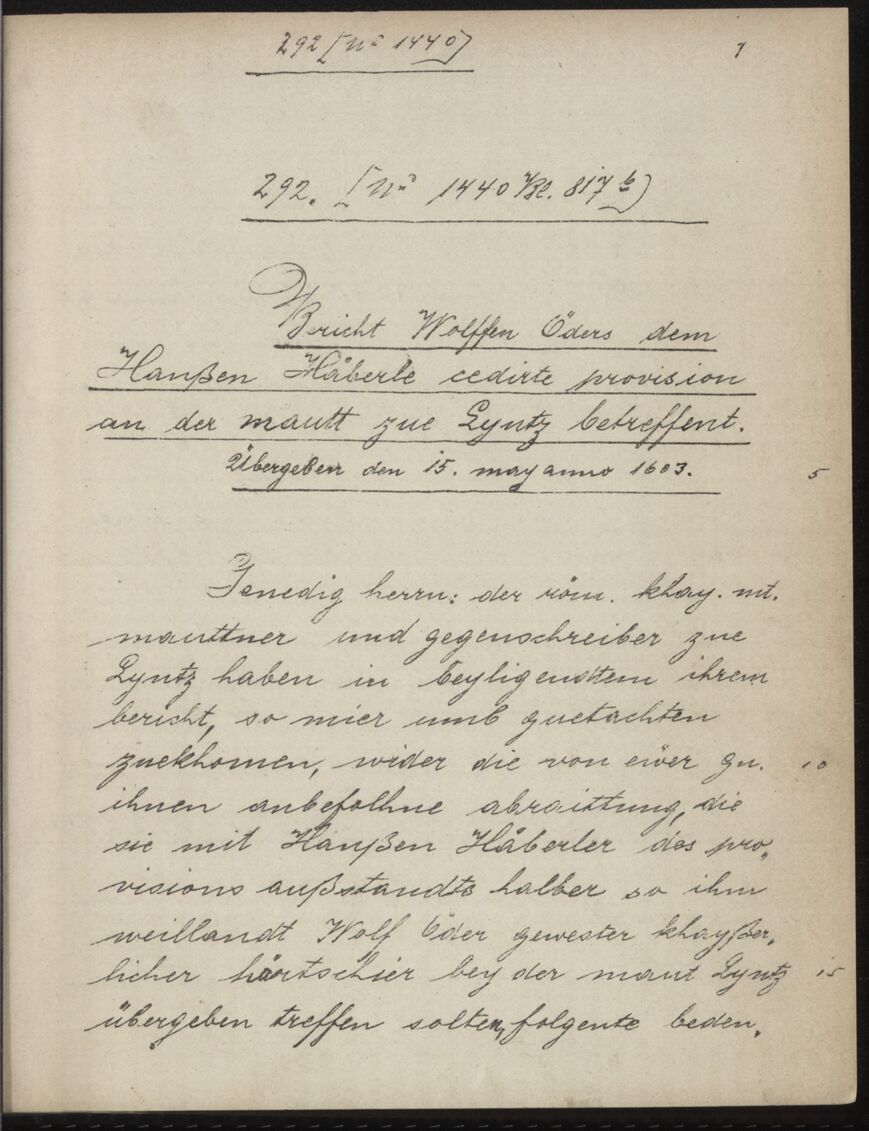 292 [Nº 1440]
1
292. [Nº 1440 Bl. 817 b]
Bericht Wolffen Öders dem
Haußen Håberle cedirte provision
an der mautt zue Lyntz betreffent.
Übergeben den 15. may anno 1603.
5
Genedig herrn: der röm. khay. mt.
mauttner und gegenschreiber zue
Lyntz haben in beyligendtem ihrem
bericht, so mier umb guetachten
zuekhomen, wider die von ewer gn.
10
ihnen anbefolhne abraittung, die
sie mit Haußen Håberler des pro„
visions außstandts halber so ihm
weillandt Wolf Öder gewester khayßer„
licher hårtschier bey der maut Lyntz
15
übergeben treffen solten, folgente beden„